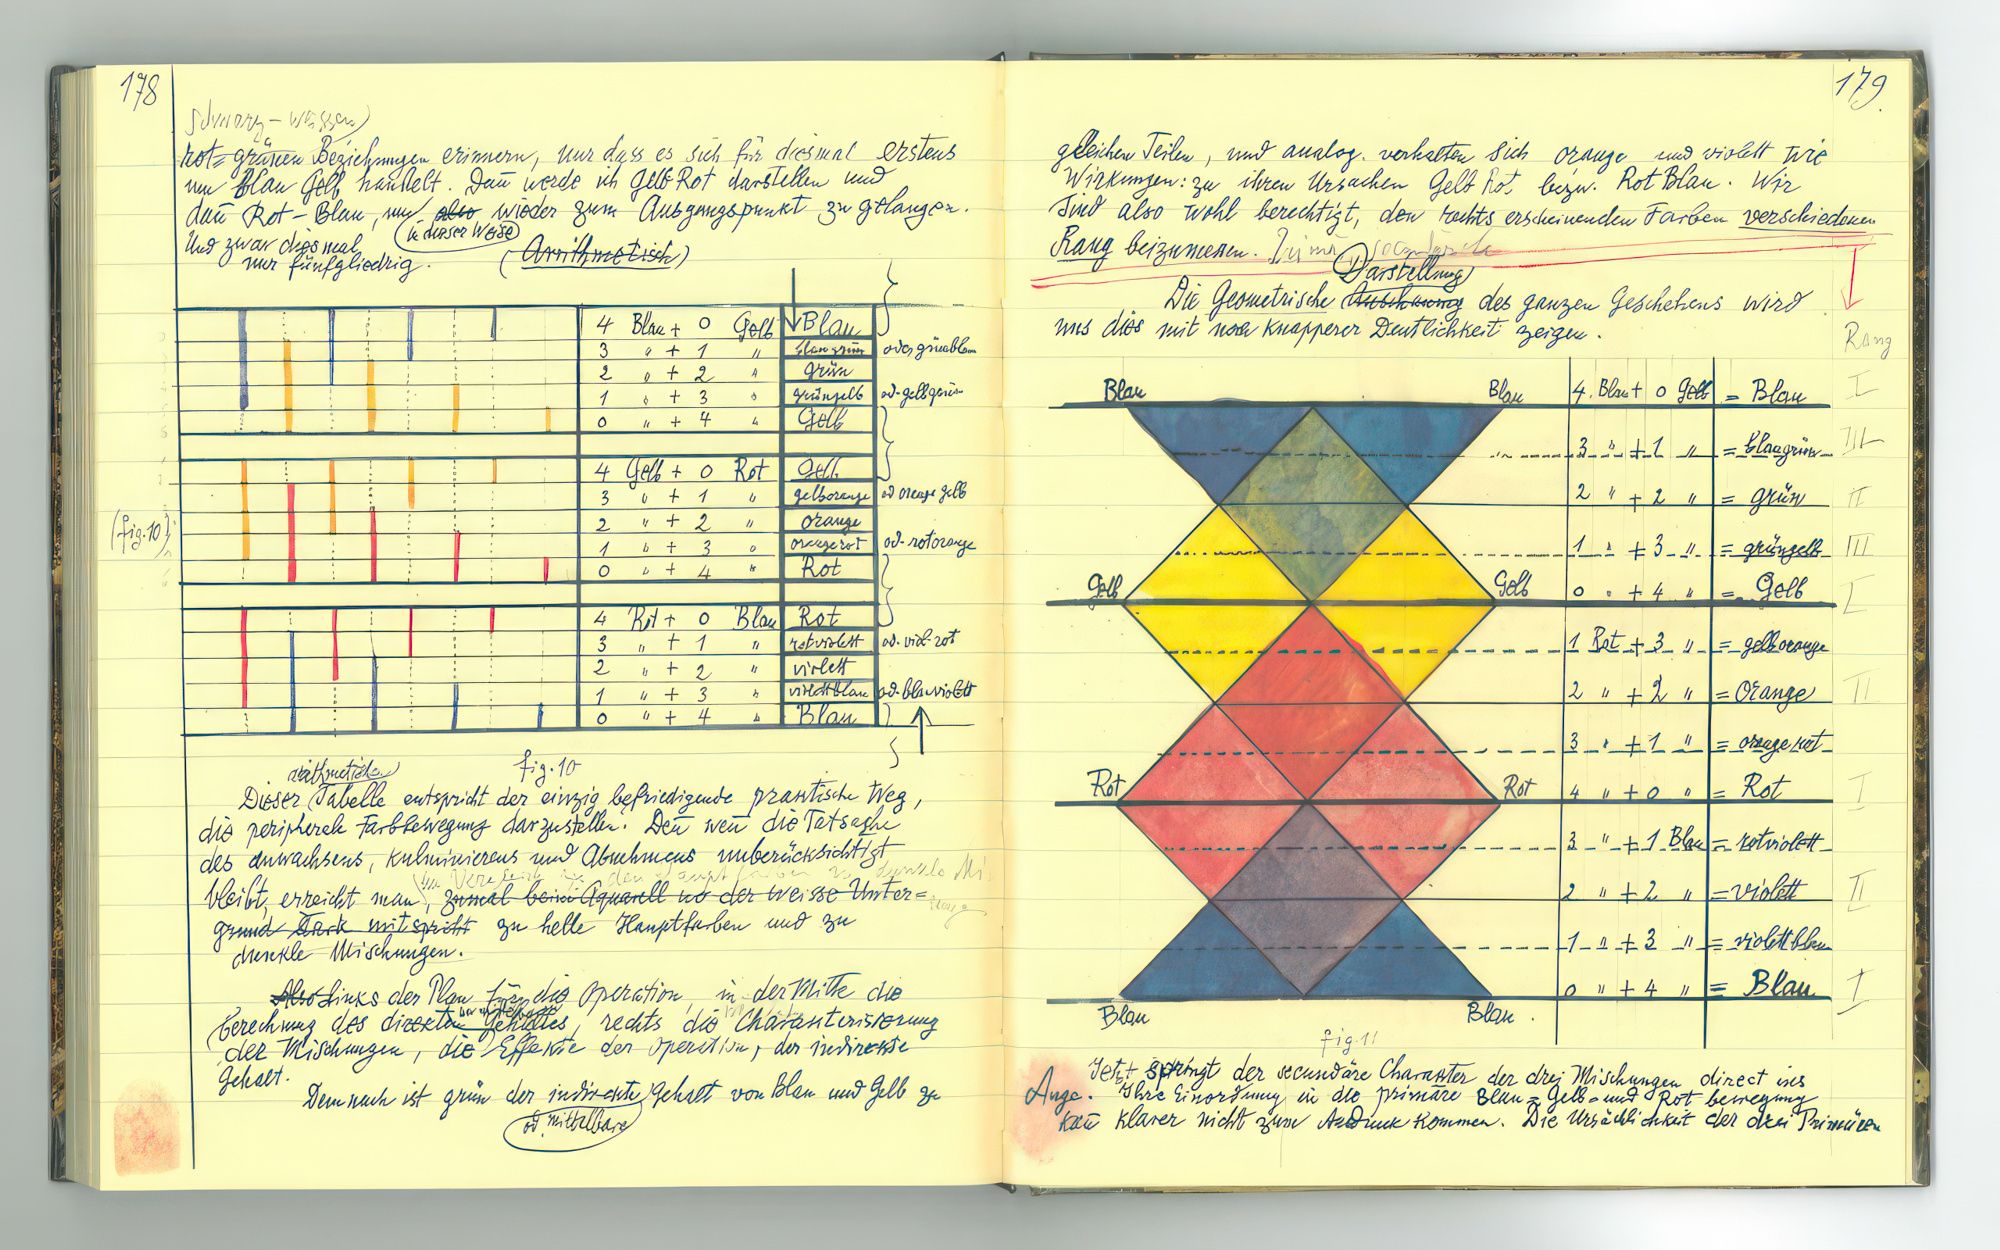 178
schwarz-weissen)
rot=grünen Beziehungen erinnern, nur dass es sich für diesmal erstens
um Blau Gelb handelt. Dañ werde ich Gelb Rot darstellen und
dañ Rot-Blau, um also wieder zum Ausgangspunkt zu gelangen.
in dieser Weise
Und zwar diesmal
nur fünfgliedrig.
(Arithmetisch)
4 Blau + 0 Gelb Blau
3 " + 1 " blaugrün oder grünblau
2 " + 2 " grün
1 " + 3 " grüngelb od. gelbgrün
0 " + 4 " Gelb
4 Gelb + 0 Rot Gelb
3 " + 1 " gelborange od orange gelb
(fig. 10)
2 " + 2 " orange
1 " + 3 " orangerot od. rotorange
0 " + 4 " Rot
4 Rot + 0 Blau Rot
3 " + 1 " rotviolett od. viol-rot
2 " + 2 " violett
1 " + 3 " violettblau od. blauviolett
0 " + 4 " Blau
fig. 10
arithmetischen
Dieser Tabelle entspricht der einzig befriedigende praktische Weg,
die peripherale Farbbewegung darzustellen. Deñ weñ die Tatsache
des anwachsens, kulminierens und Abnehmens unberücksichtigt
im Vergleich zu den Hauptfarben zu dunkle
bleibt, erreicht man, zumal beim Aquarell wo der weisse Unter=
grund stark mitspricht zu helle Hauptfarben und zu
dunkle Mischungen.
Also Links der Plan für die Operation, in der Mitte die
Berechnung des direkten Gehaltes, rechts die Charakterisierung
der Mischungen, die Effekte der Operation, der indirekte
Gehalt.
Demnach ist grün der indirekte Gehalt von Blau und Gelb zu
od. mittelbare
179
gleichen Teilen, und analog. verhalten sich orange und violett wie
Wirkungen: zu ihren Ursachen Gelb Rot, bezw. Rot Blau. Wir
sind also wohl berechtigt, den rechts erscheinenden Farben verschiedenen
Rang beizumessen.
Darstellung
Die Geometrische des ganzen Geschehens wird
uns dies mit noch knapperer Deutlichkeit zeigen.
Rang
Blau Blau 4 Blau + 0 Gelb = Blau I
3 " + 1 " = blaugrün III
2 " + 2 " = grün II
1 " + 3 " = grüngelb III
Gelb Gelb 0 " + 4 " = Gelb I
1 Rot + 3 " = gelborange
2 " + 2 " = Orange II
3 " + 1 " = orangerot
Rot Rot 4 " + 0 " = Rot I
3 " + 1 Blau = rotviolett
2 " + 2 " = violett II
1 " + 3 " = violettblau
0 " + 4 " = Blau I
Blau Blau.
fig. 11
Jetzt springt der secundäre Character der drei Mischungen direct ins
Auge. Ihre Einordnung in die primäre Blau= Gelb= und Rot bewegung
kañ klarer nicht zum Ausdruck kommen. Die Ursächlichkeit der drei Primären